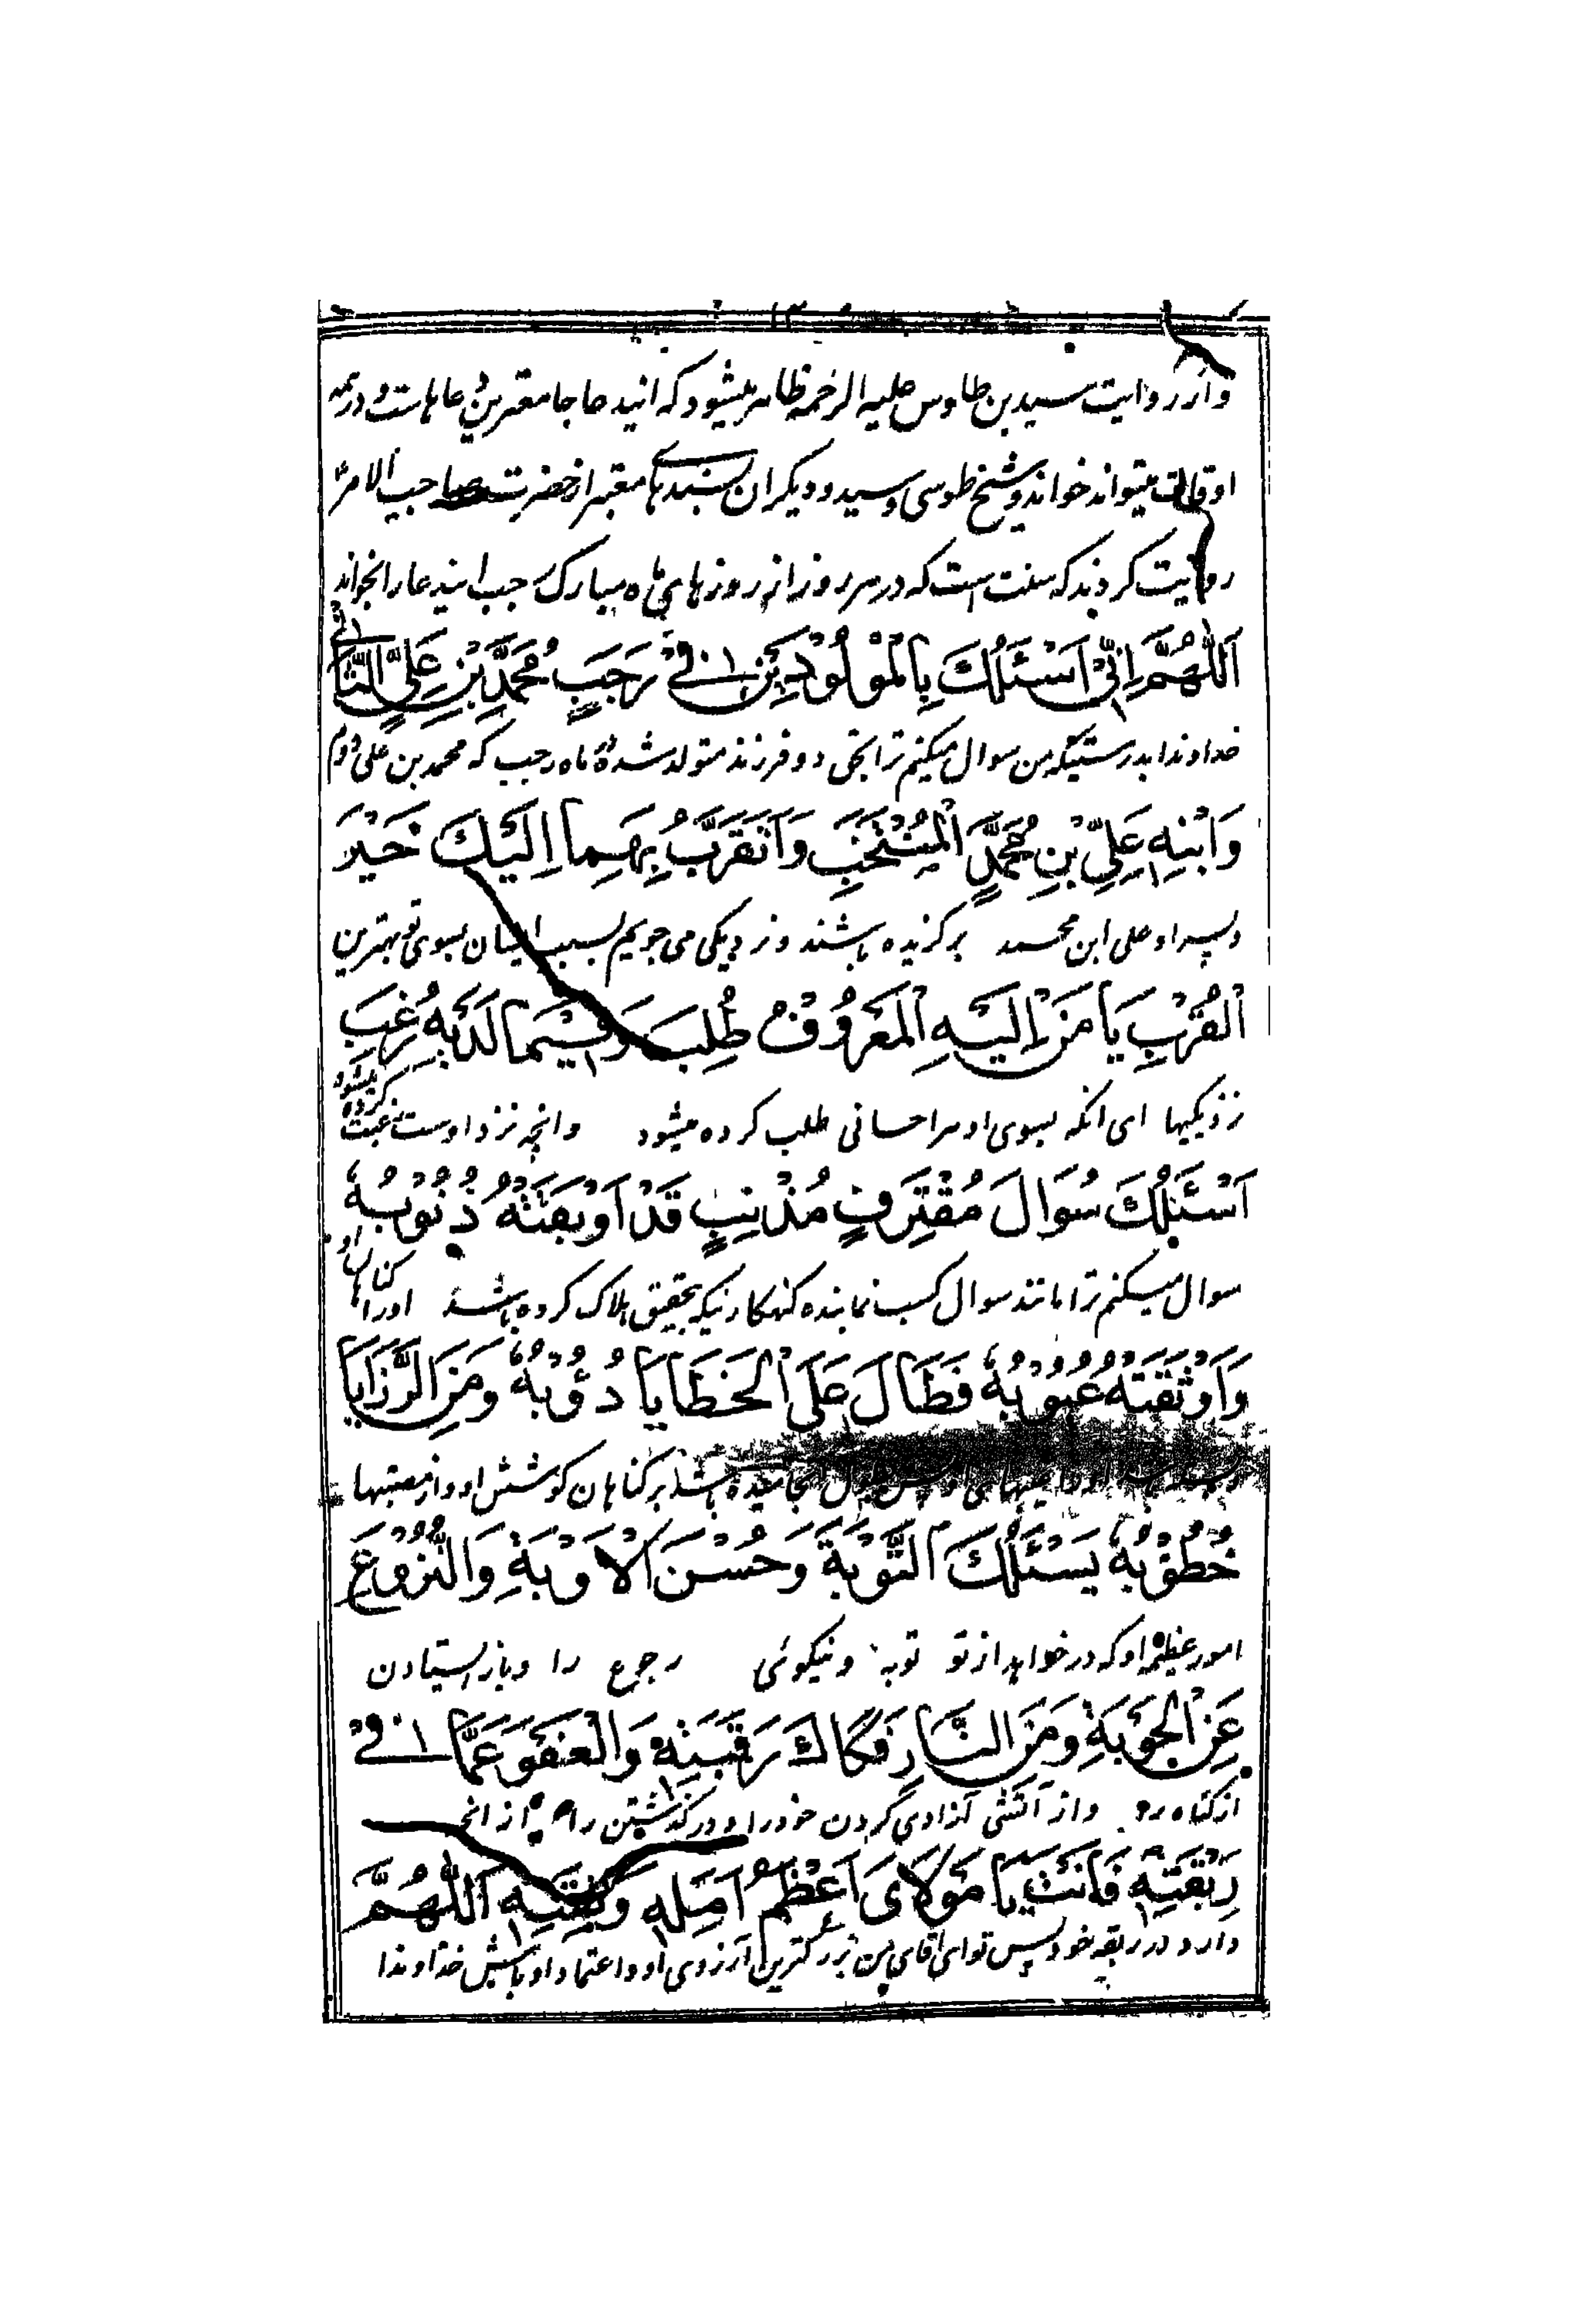 و از روایت سید بن طاوس علیه الرحمه ظاهر میشود که این دعا جامع‌ترین دعاهاست و در همه
اوقات میتواند خواند و شیخ طوسی و سید و دیگران بسندهای معتبر از حضرت صاحب الامر
روایت کردند که سنت است که در هر روز از روزهای ماه مبارک رجب این دعا را بخواند
اَللّٰهُمَّ اِنِّیْ اَسْئَلُكَ بِالْمَوْلُوْدَیْنِ فِیْ رَجَبٍ مُحَمَّدِ بْنِ عَلِیٍّ الثَّانِیْ
خداوندا بدرستیکه من سوال میکنم ترا بحق دو فرزند متولد شدۀ ماه رجب که محمد بن علی دوم
وَابْنِهٖ عَلِیِّ بْنِ مُحَمَّدٍ الْمُنْتَجَبِ وَاَتَقَرَّبُ بِهِمَا اِلَیْكَ خَیْرَ
و پسر او علی ابن محمد برگزیده باشند و نزدیکی می جویم بسبب ایشان بسوی تو بهترین
الْقُرَبِ یَا مَنْ اِلَیْهِ الْمَعْرُوْفُ طُلِبَ وَفِیْمَا لَدَیْهِ رُغِبَ
نزدیکیها ای آنکه بسوی او هر احسانی طلب کرده میشود و آنچه نزد اوست رغبت کرده میشود
اَسْئَلُكَ سُوَالَ مُقْتَرِفٍ مُذْنِبٍ قَدْ اَوْبَقَتْهُ ذُنُوْبُهُ
سوال میکنم ترا مانند سوال کسب نماینده گنهکاریکه بتحقیق هلاک کرده باشد او را گناهان او
وَاَوْثَقَتْهُ عُیُوْبُهُ فَطَالَ عَلَی الْخَطَایَا دُؤُبُهُ وَمِنَ الرَّزَایَا
او را عیبهای او پس طول انجامیده باشد بر گناهان کوشش او و از مصیبتها
خُطُوْبُهُ یَسْئَلُكَ التَّوْبَةَ وَحُسْنَ الْاَوْبَةِ وَالنُّزُوْعَ
امور عظیم او که در خواهد از تو توبه و نیکوئی رجوع را و باز ایستادن
عَنِ الْحَوْبَةِ وَمِنَ النَّارِ فَكَاكَ رَقَبَتِهٖ وَالْعَفْوَ عَمَّا فِیْ
از گناه و از آتش آزادی گردن خود را و در گذشتن را از آنچه
رِبْقَتِهٖ فَاَنْتَ یَا مَوْلَایَ اَعْظَمُ اَمَلِهٖ وَثِقَتِهٖ اَللّٰهُمَّ
دارد در ربقه خود پس تو ای آقای من بزرگترین آرزوی او و اعتماد او باش خداوندا